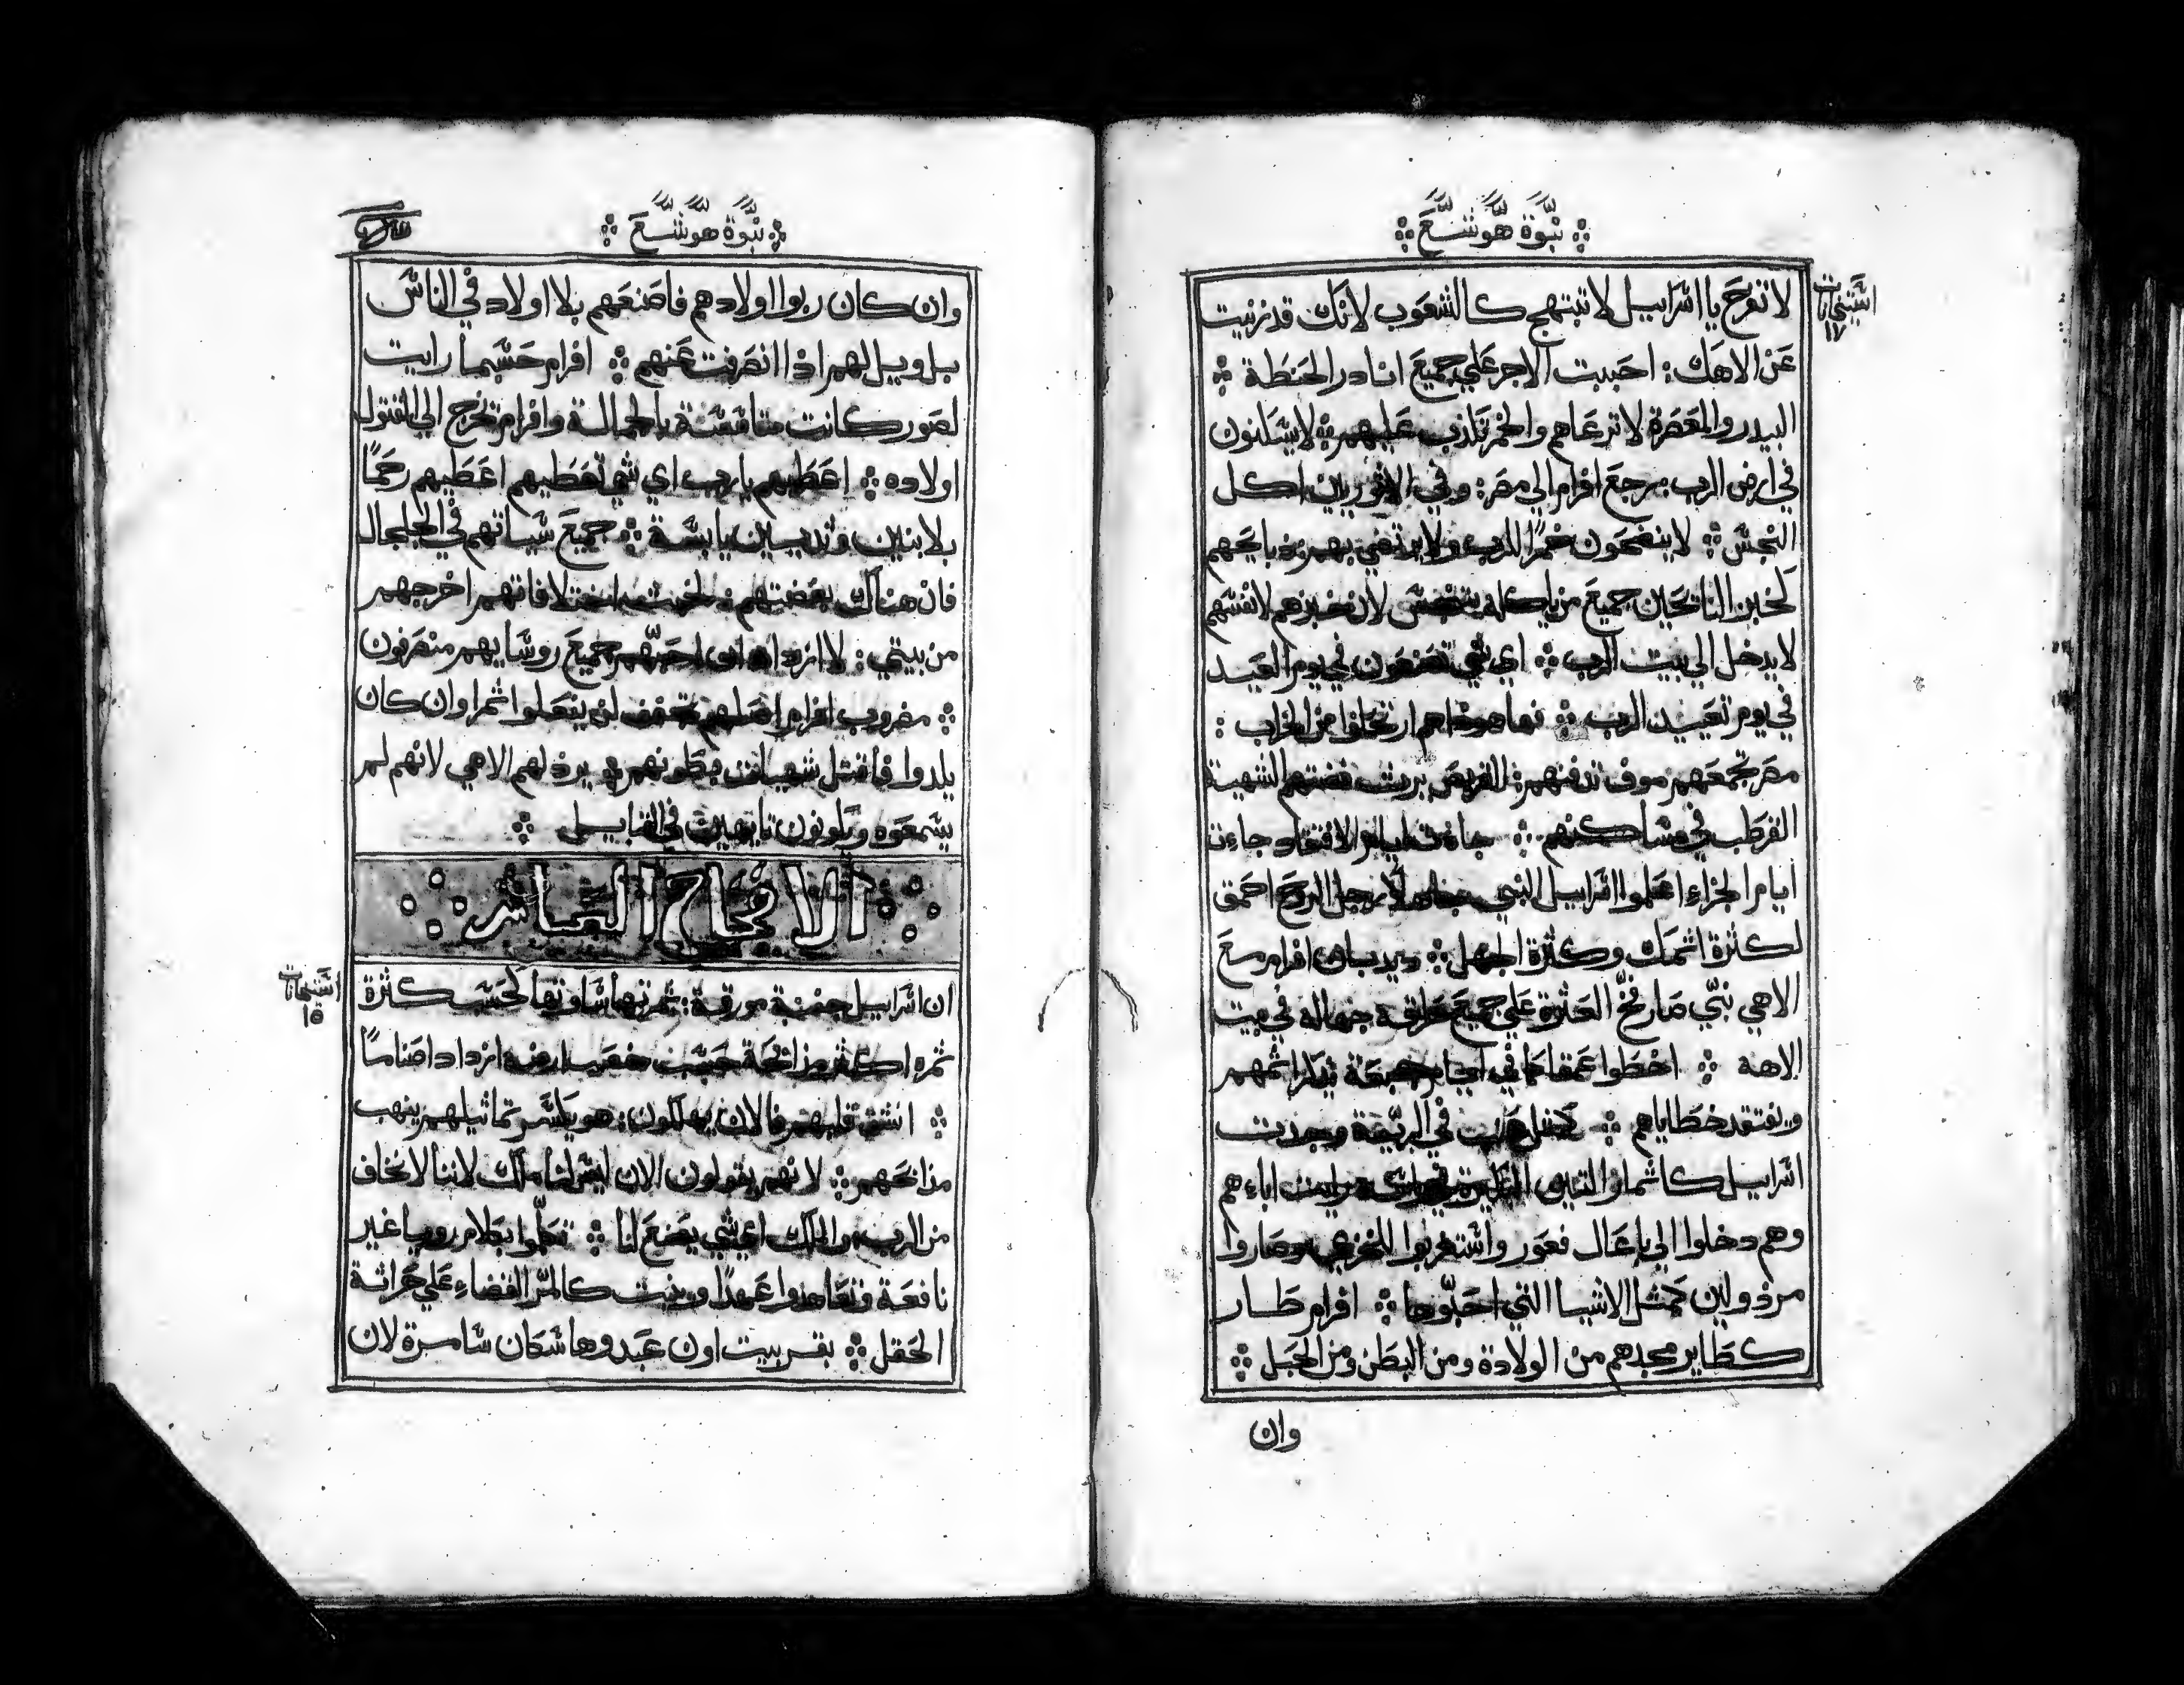 نبوة هوشع
استيخانات
١٧
لا تفرح يا اسراييل لا تبتهج كالشعوب لانك قد زنيت
عن الاهك: احببت الاجر علي جميع انادر الحنطة
البيدر والمعصرة لا ترعاهم والخمر تكذب عليهم لا يسكنون
في ارض الرب: يرجع افرام الي مصر: وفي الاثوريين اكل
النجس لا ينضحون خمرًا للرب ولا يرتضي بهم ذبايحهم
كخبز النايحين جميع من ياكله يتنجس لان خبزهم لانفسهم
لا يدخل الي بيت الرب اي شي تصنعون في يوم العيد
في يوم تعييد الرب فها هوذا هم ارتحلوا من الخراب
مصر تجمعهم موف تدفنهم: القريص يرث فضتهم الشهية
القرطب في مساكنهم جاءت ايام الافتقاد جاءت
ايام الجزاء اعلموا اسراييل النبي رجل الروح احمق
لكثرة اثمك وكثرة الجهل ديدبان افرام مع
الاهي نبي صار فخ العثرة علي جميع طرايقه جهاله في بيت
الاهه اخطوا عمقا كما في ايام جبعة يذكر اثمهم
ويفتقد خطاياهم في البرية وجدت
اسراييل كاثمار التين رايت اباءهم
وهم دخلوا الي باعال فعور واستغربوا للخزي وصاروا
مرذولين كمثل الاشيا التي احبوها افرام طار
كطاير مجدهم من الولادة ومن البطن ومن الحبل
وان
نبوة هوشع
وان كان ربوا اولادهم فاصنعهم بلا اولاد في الناس
بل ويل لهم اذا انصرفت عنهم افرام حسبما رايت
لصور كانت متاسسة بالجمالة وافرام تخرج الي القتول
اولاده اعطيهم يا رب اي شي تعطيهم اعطيهم رحمًا
بلا بنين وثديين يابسة جميع سياتهم في الجلجال
فان هناك بغضتهم: لخبث اختلافاتهم اخرجهم
من بيتي: لا ازداد ان احبهم جميع روسايهم منصرفون
مضروب افرام اصلهم تجفف لن يفعلوا ثمرا وان كان
يلدوا فاقتل شهيات بطونهم يرذلهم الاهي لانهم لم
يسمعوه ويكونون تايهين في القبايل
الافتحاح العاشر
استيخانات
١٥
ان اسراييل جفنة مورقة: ثمرتها ساوتها كحسب كثرة
ثمره اكثر مذابحة حسب خصب ارضه ازداد اصنامًا
انشق قلبهم فالان يهلكون: هو يكسر تماثيلهم ينهب
مذابحهم لانهم يقولون الان ليس لنا ملك لاننا لا نخاف
من الرب والملك اي شي يصنع لنا تكلموا بكلام رويا غير
نافعة وتعاهدوا عهدًا وينبت كالمر القضاء علي حراثة
الحقل بقر بيت اون عبدوها سكان سامرة لان